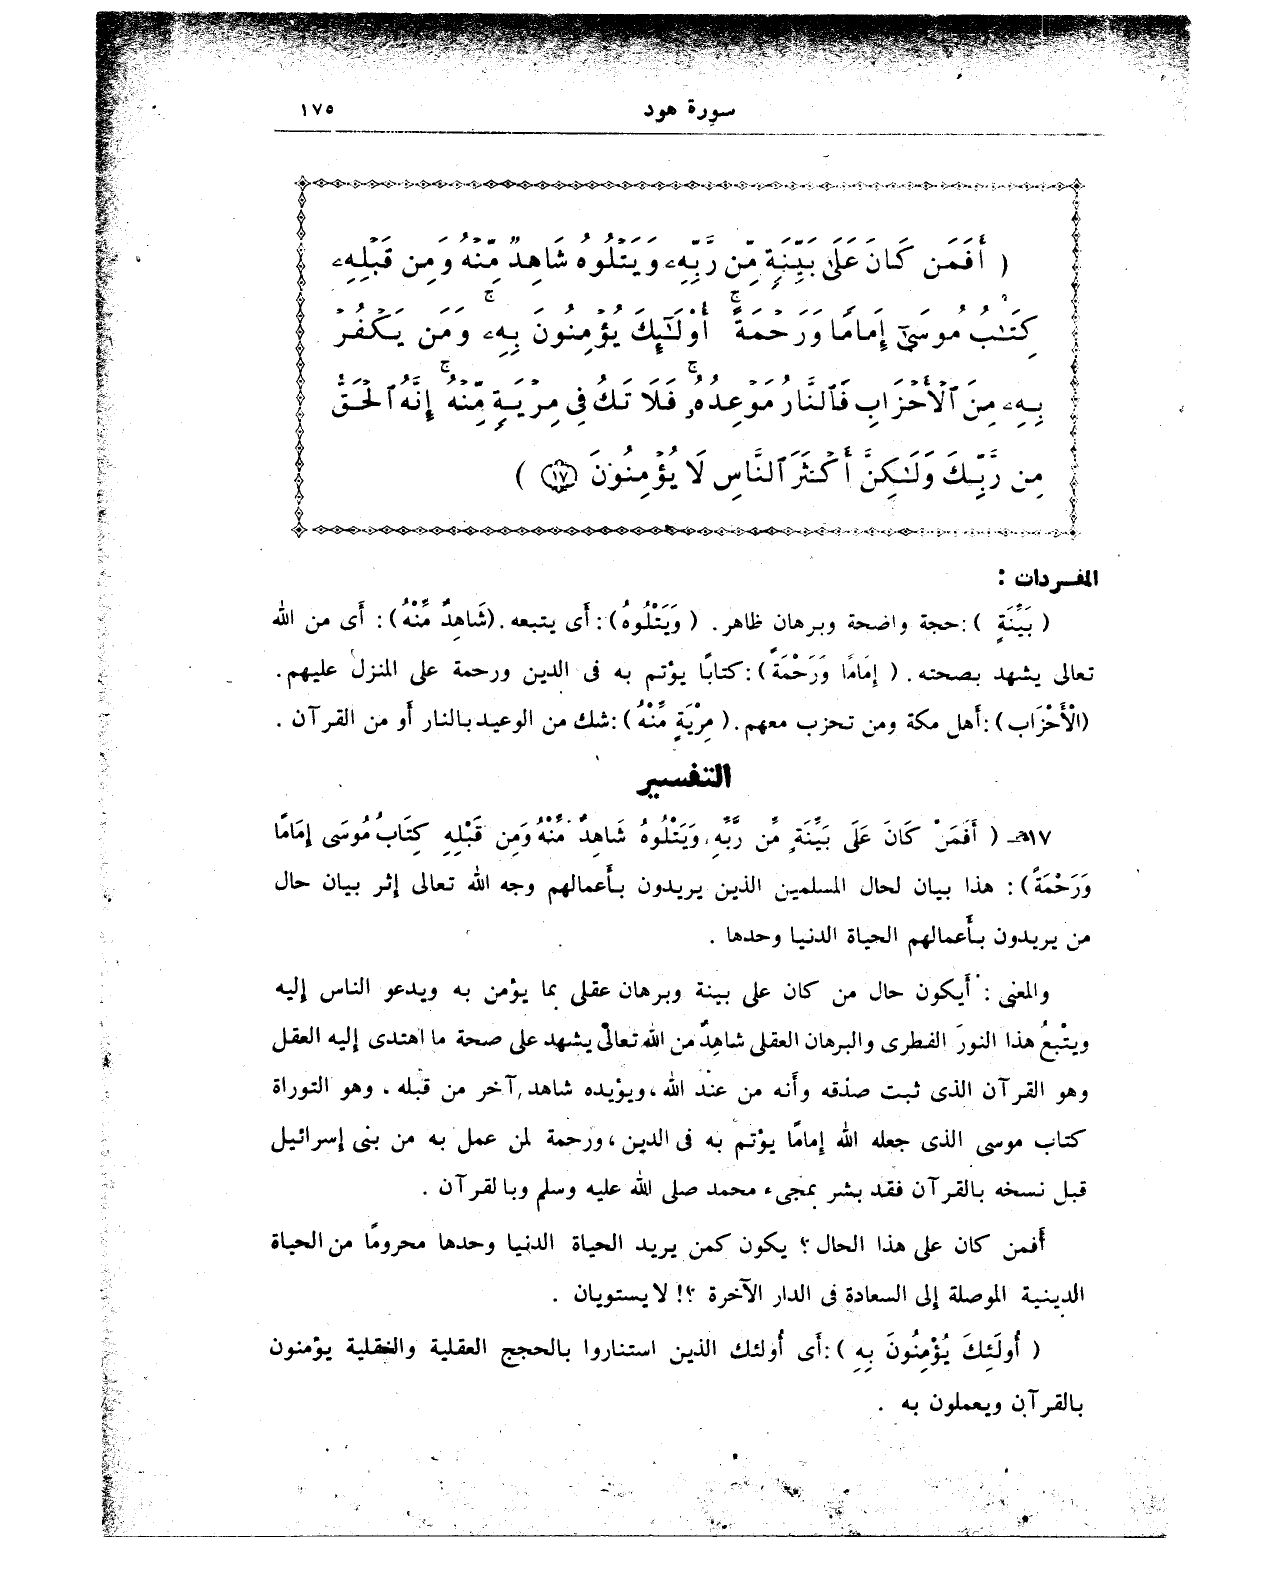 سورة هود ١٧٥
( أَفَمَن كَانَ عَلَىٰ بَيِّنَةٍ مِّن رَّبِّهِۦ وَيَتْلُوهُ شَاهِدٌ مِّنْهُ وَمِن قَبْلِهِۦ
كِتَٰبُ مُوسَىٰٓ إِمَامًا وَرَحْمَةً ۚ أُوْلَٰٓئِكَ يُؤْمِنُونَ بِهِۦ ۚ وَمَن يَكْفُرْ
بِهِۦ مِنَ ٱلْأَحْزَابِ فَٱلنَّارُ مَوْعِدُهُۥ ۚ فَلَا تَكُ فِى مِرْيَةٍ مِّنْهُ ۚ إِنَّهُ ٱلْحَقُّ
مِن رَّبِّكَ وَلَٰكِنَّ أَكْثَرَ ٱلنَّاسِ لَا يُؤْمِنُونَ ﴿١٧﴾ )
المفردات :
( بَيِّنَةٍ ) : حجة واضحة وبرهان ظاهر . ( وَيَتْلُوهُ ) : أى يتبعه . (شَاهِدٌ مِّنْهُ) : أى من الله
تعالى يشهد بصحته . ( إِمَامًا وَرَحْمَةً ) : كتابًا يؤتم به فى الدين ورحمة على المنزل عليهم .
(الْأَحْزَاب) : أهل مكة ومن تحزب معهم . ( مِرْيَةٍ مِّنْهُ ) : شك من الوعيد بالنار أو من القرآن .
التفسير
١٧- ( أَفَمَنْ كَانَ عَلَى بَيِّنَةٍ مِّن رَّبِّهِ وَيَتْلُوهُ شَاهِدٌ مِّنْهُ وَمِن قَبْلِهِ كِتَابُ مُوسَى إِمَامًا
وَرَحْمَةً ) : هذا بيان لحال المسلمين الذين يريدون بأعمالهم وجه الله تعالى إثر بيان حال
من يريدون بأعمالهم الحياة الدنيا وحدها .
والمعنى : أيكون حال من كان على بينة وبرهان عقلى بما يؤمن به ويدعو الناس إليه
ويتْبعُ هذا النورَ الفطرى والبرهان العقلى شاهِدٌ من الله تعالى يشهد على صحة ما اهتدى إليه العقل
وهو القرآن الذى ثبت صدقه وأنه من عند الله ، ويؤيده شاهد آخر من قبله ، وهو التوراة
كتاب موسى الذى جعله الله إمامًا يؤتم به فى الدين ، ورحمة لمن عمل به من بنى إسرائيل
قبل نسخه بالقرآن فقد بشر بمجىء محمد صلى الله عليه وسلم وبالقرآن .
أفمن كان على هذا الحال ؟ يكون كمن يريد الحياة الدنيا وحدها محرومًا من الحياة
الدينية الموصلة إلى السعادة فى الدار الآخرة ؟! لا يستويان .
( أُولَئِكَ يُؤْمِنُونَ بِهِ ) : أى أُولئك الذين استناروا بالحجج العقلية والنقلية يؤمنون
بالقرآن ويعملون به .